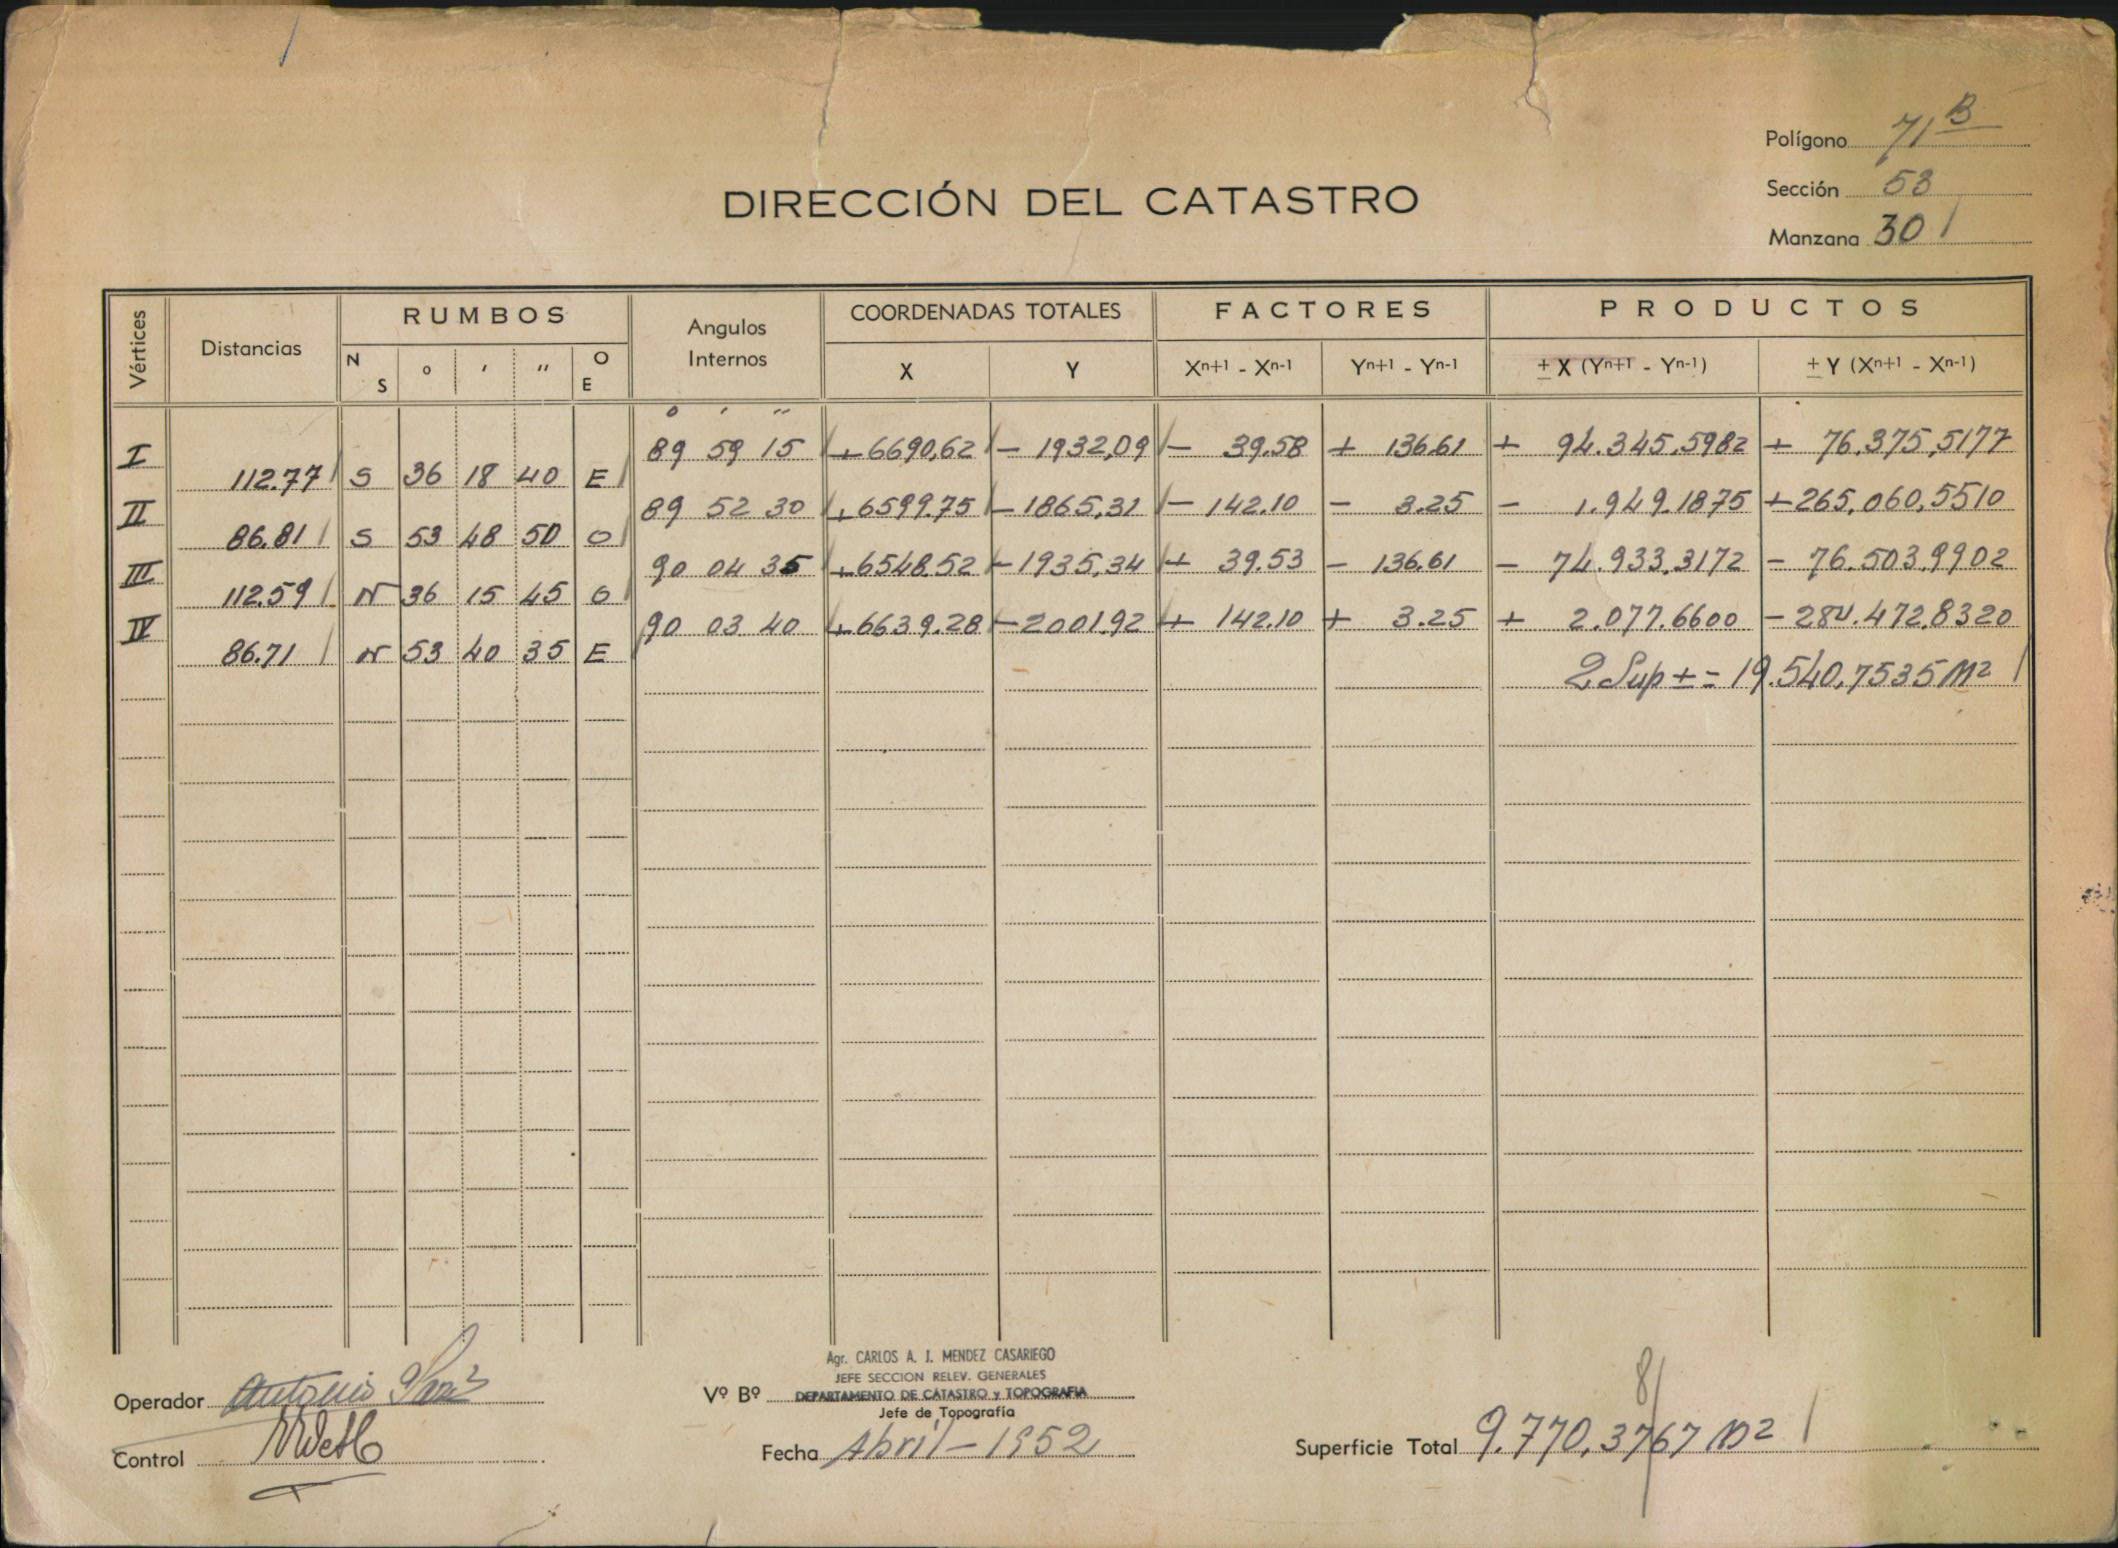 Polígono 71 B
Sección 53
Manzana 30
DIRECCIÓN DEL CATASTRO
Vértices Distancias RUMBOS Angulos Internos COORDENADAS TOTALES FACTORES PRODUCTOS
N S o ' " O E X Y Xn+1 - Xn-1 Yn+1 - Yn-1 ± X (Yn+1 - Yn-1) ± Y (Xn+1 - Xn-1)
o ' "
I 89 59 15 +6690,62 - 1932,09 - 39.58 + 136.61 + 94.345.5982 + 76.375,5177
112.77 S 36 18 40 E
II 89 52 30 +6599.75 - 1865,31 - 142.10 - 3.25 - 1.949.1875 +265.060,5510
86.81 S 53 48 50 O
III 90 04 35 +6548.52 - 1935,34 + 39.53 - 136.61 - 74.933.3172 - 76.503.9902
112.59 N 36 15 45 O
IV 90 03 40 +6639.28 - 2001.92 + 142.10 + 3.25 + 2.077.6600 - 284.472.8320
86.71 N 53 40 35 E
2 Sup ± = 19.540,7535 M2
Agr. CARLOS A. J. MENDEZ CASARIEGO
JEFE SECCION RELEV. GENERALES
DEPARTAMENTO DE CATASTRO y TOPOGRAFIA
Operador Antonio Vº Bº
Jefe de Topografía
8
Control Fecha Abril - 1952 Superficie Total 9.770,3767 M2